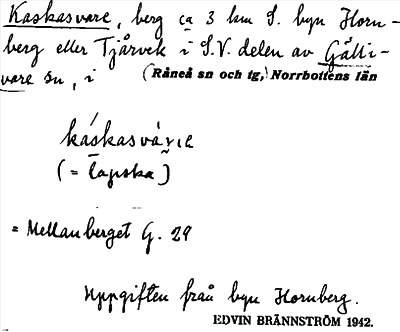 Kaskasvare, berg ca 3 km S. byn Horn-
berg eller Tjårvek i S.V. delen av Gälli-
vare sn, i (Råneå sn och tg, Norrbottens län
káskasvárıε
(= lapska)
= Mellanberget G. 29
Uppgiften från byn Hornberg.
EDVIN BRÄNNSTRÖM 1942.